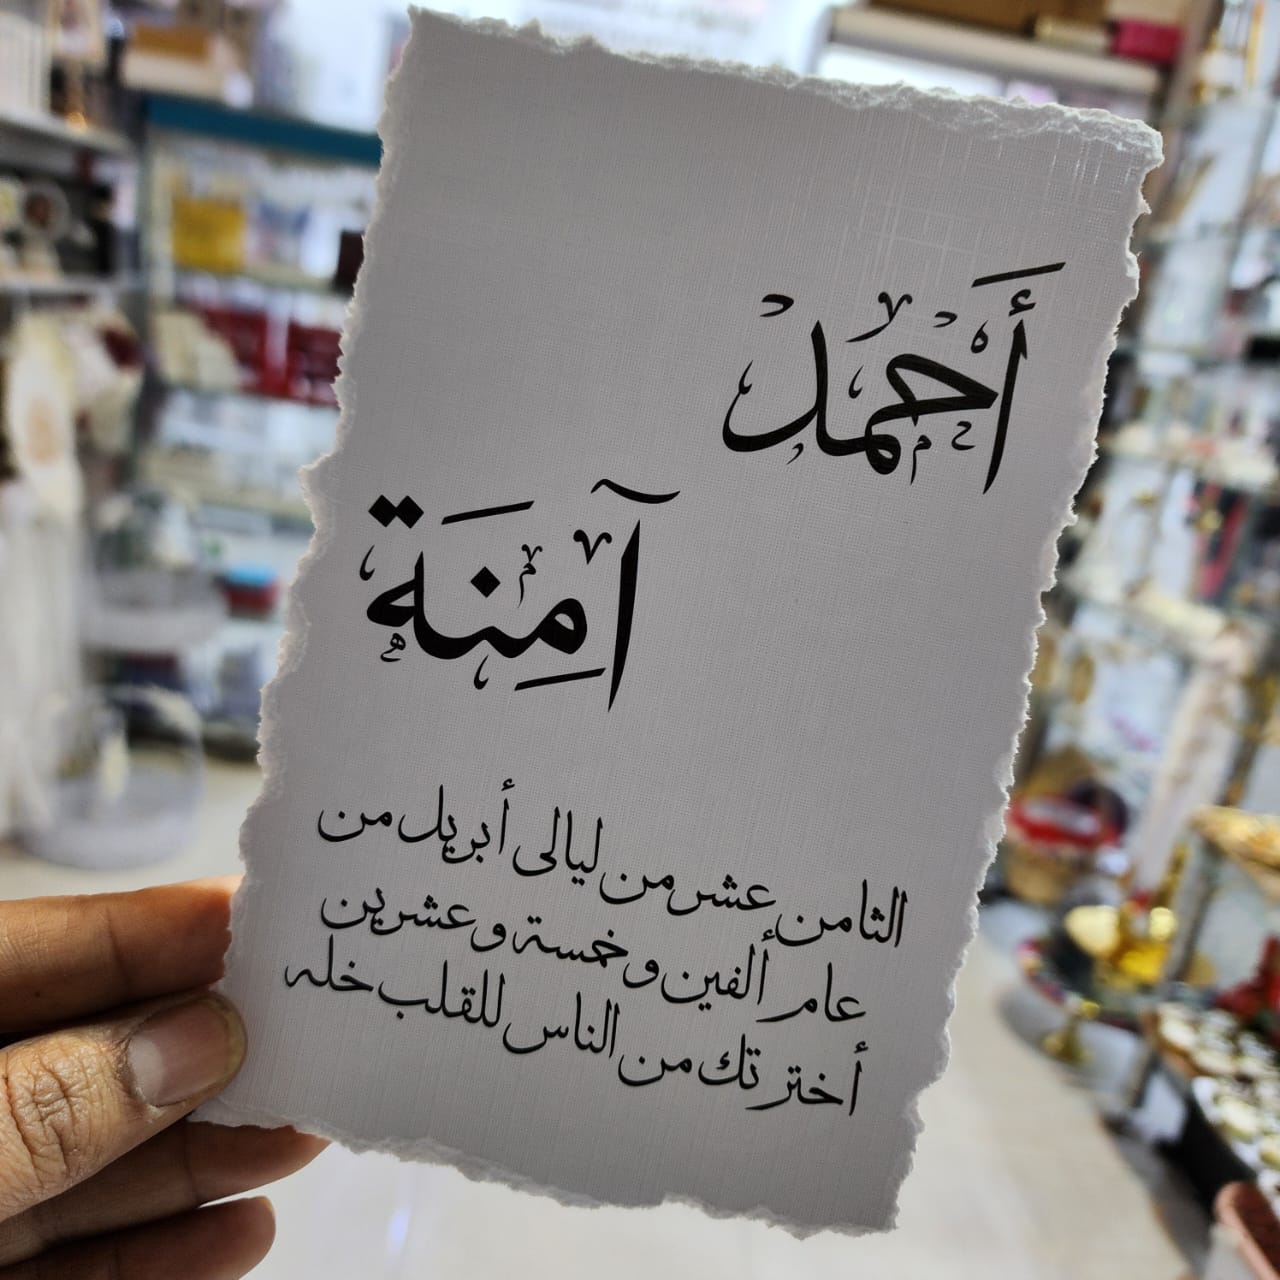 أَحْمَد
آمِنَة
الثامن عشر من ليالى أبريل من
عام ألفين و خمسة و عشرين
أختر تك من الناس للقلب خله